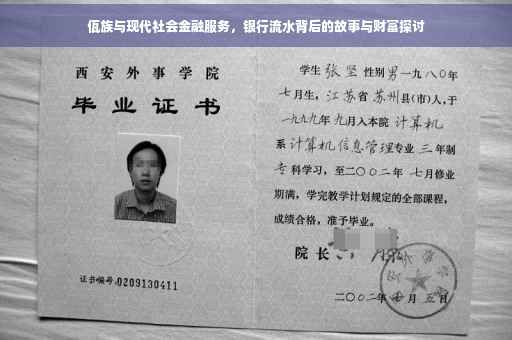 佤族与现代社会金融服务，银行流水背后的故事与财富探讨
西安外事学院
毕业证书
证书编号:0209130411
学生 张坚 性别 男 一九八〇年
七月生，江苏省 苏州县(市)人，于
一九九九年 九月入本院 计算机
系 计算机信息管理专业 三 年制
专科学习，至二〇〇二年 七月修业
期满，学完教学计划规定的全部课程，
成绩合格，准予毕业。
院长
二〇〇二年 七 月 五 日